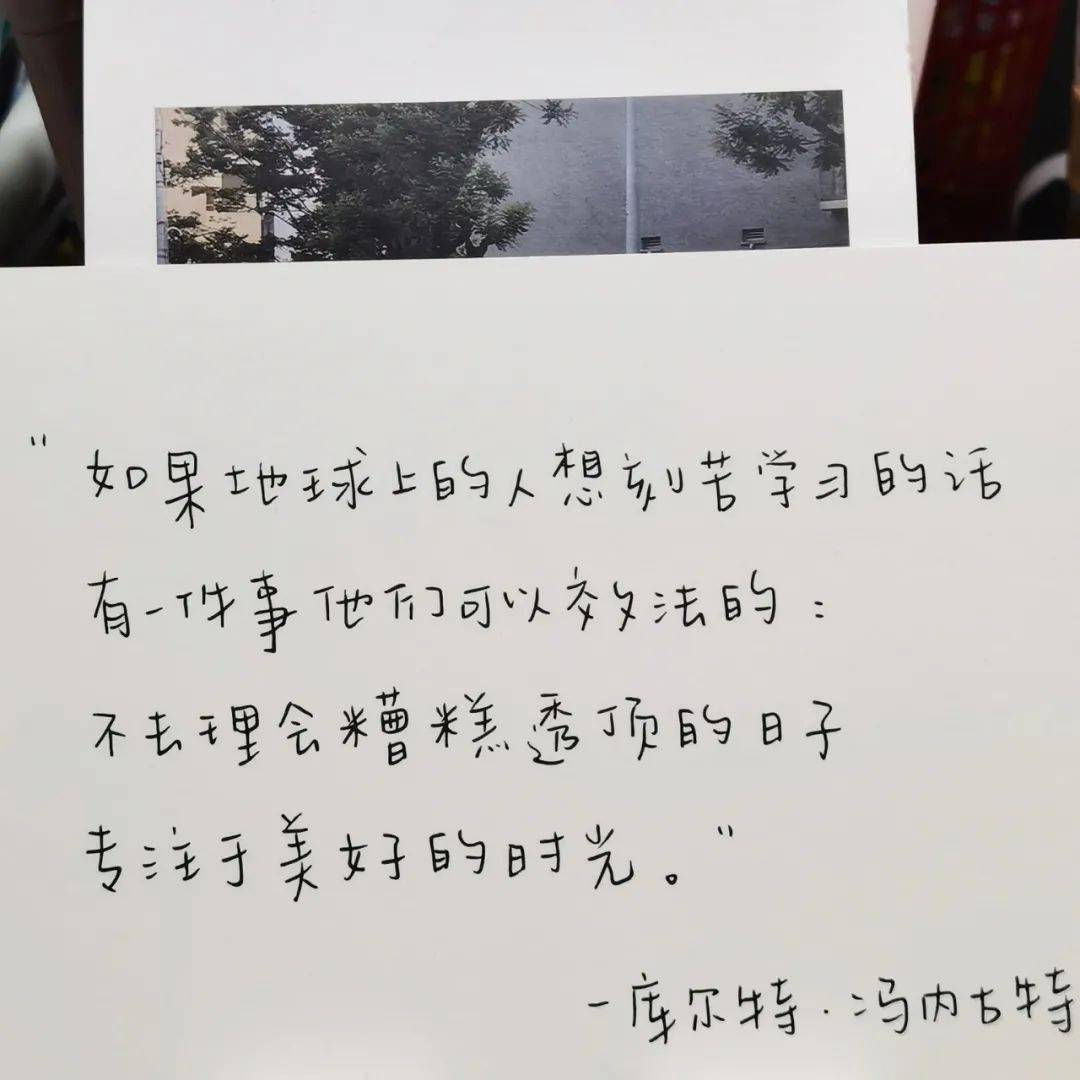 "如果地球上的人想刻苦学习的话
有一件事他们可以效法的:
不去理会糟糕透顶的日子
专注于美好的时光。"
-库尔特·冯内古特